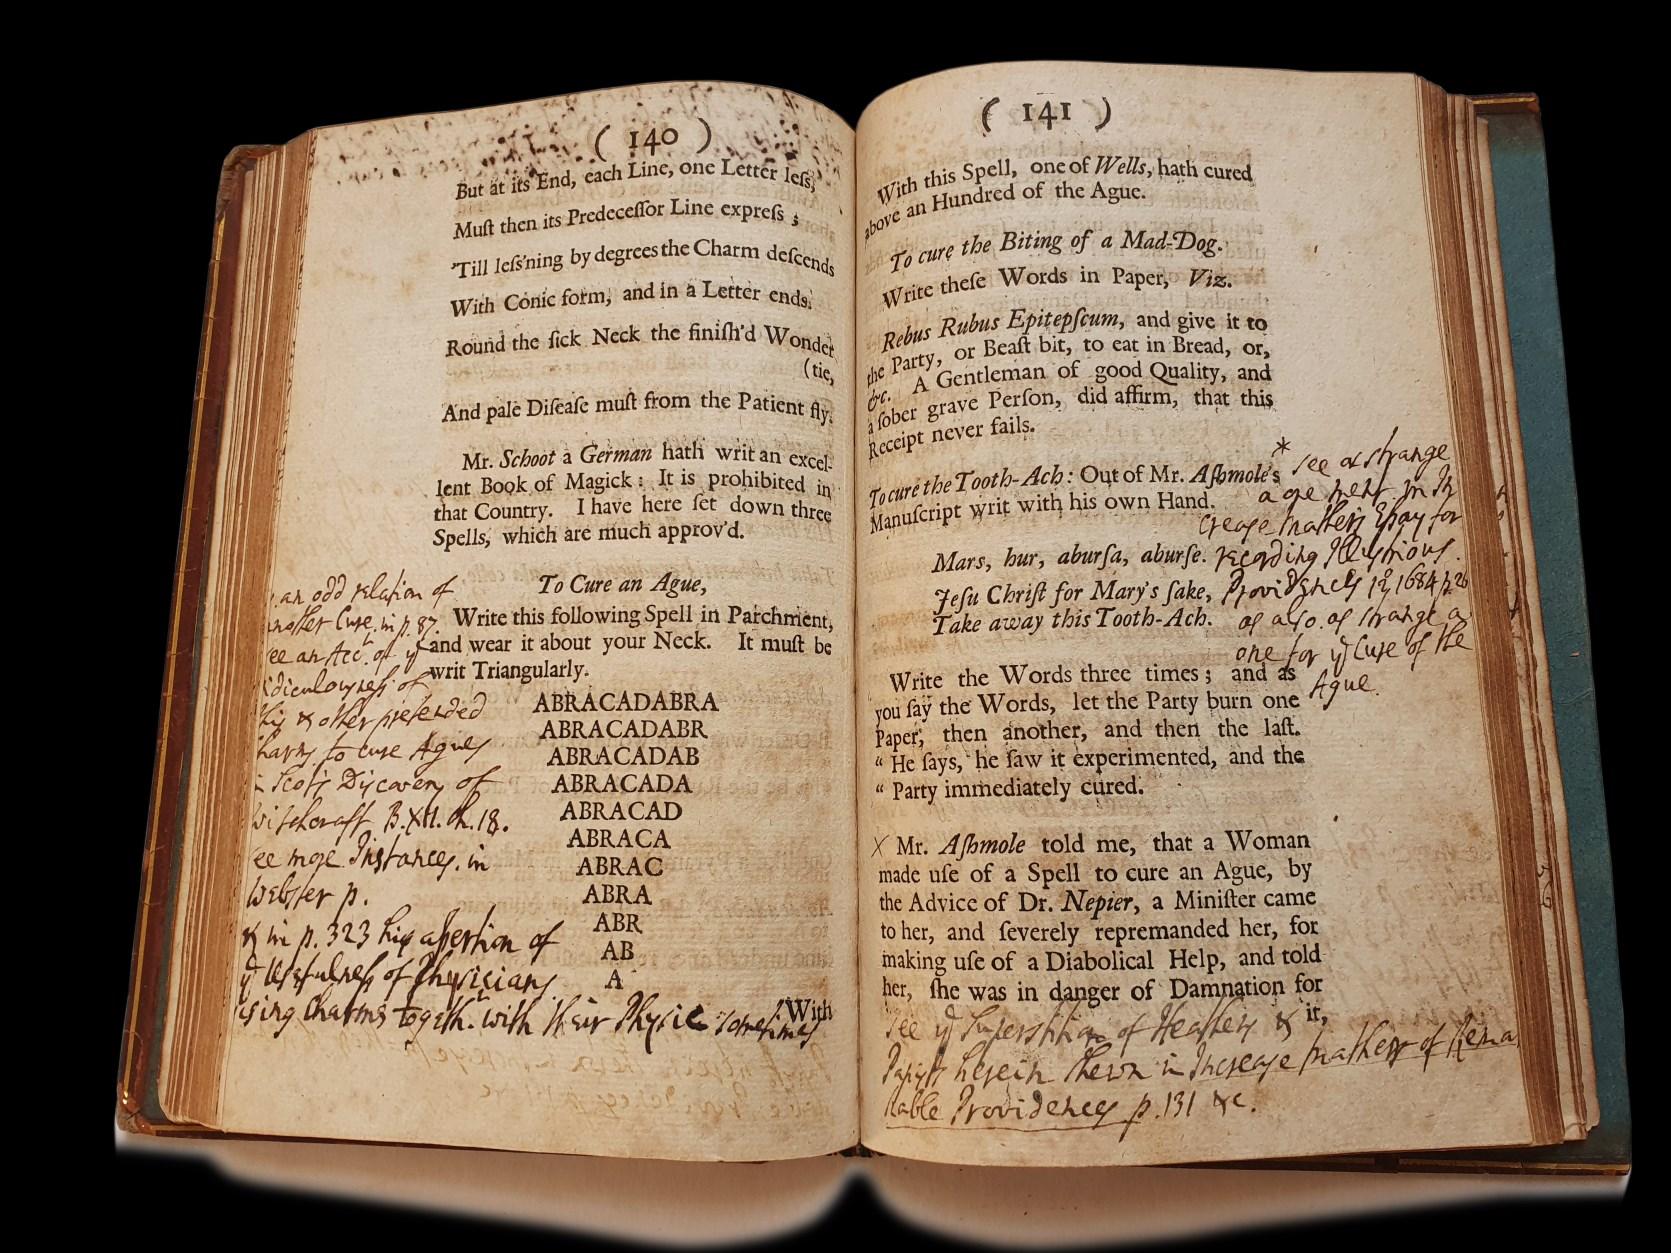 ( 140 )
But at its End, each Line, one Letter leſs,
Muſt then its Predeceſſor Line expreſs ;
'Till leſs'ning by degrees the Charm deſcends
With Conic form, and in a Letter ends.
Round the ſick Neck the finiſh'd Wonder
(tie,
And pale Diſeaſe muſt from the Patient fly.
Mr. Schoot a German hath writ an excel-
lent Book of Magick : It is prohibited in
that Country. I have here ſet down three
Spells, which are much approv'd.
To Cure an Ague,
Write this following Spell in Parchment,
and wear it about your Neck. It muſt be
writ Triangularly.
ABRACADABRA
ABRACADABR
ABRACADAB
ABRACADA
ABRACAD
ABRACA
ABRAC
ABRA
ABR
AB
A
With
an odd relation of
another Cure, in p. 87
see an Acct. of ye
ridiculousness of
this & other pretended
charms to cure Agues
in Scots Discovery of
Witchcraft B.XII. Ch. 18.
see more Instances. in
Webster p.
& in p. 323 his assertion of
ye usefulness of Physicians
using Charms togeth. with their Physic sometimes
( 141 )
With this Spell, one of Wells, hath cured
above an Hundred of the Ague.
To cure the Biting of a Mad-Dog.
Write theſe Words in Paper, Viz.
Rebus Rubus Epitepſcum, and give it to
the Party, or Beaſt bit, to eat in Bread, or,
&c. A Gentleman of good Quality, and
a ſober grave Perſon, did affirm, that this
Receipt never fails.
To cure the Tooth-Ach : Out of Mr. Aſhmole's
Manuſcript writ with his own Hand.
Mars, hur, aburſa, aburſe.
Jeſu Chriſt for Mary's ſake,
Take away this Tooth-Ach.
Write the Words three times ; and as
you ſay the Words, let the Party burn one
Paper, then another, and then the laſt.
“ He ſays, he ſaw it experimented, and the
“ Party immediately cured.
X Mr. Aſhmole told me, that a Woman
made uſe of a Spell to cure an Ague, by
the Advice of Dr. Nepier, a Miniſter came
to her, and ſeverely repremanded her, for
making uſe of a Diabolical Help, and told
her, ſhe was in danger of Damnation for
it,
* see a strange
one in In
crease Mathers Essay for
recording Illustrious
Providences 1684 p.26
as also of strange
one for ye Cure of the
Ague.
see ye Superstition of Heathens &
Papists herein shewn in Increase Mathers of Rema
kable Providences p. 131 &c.